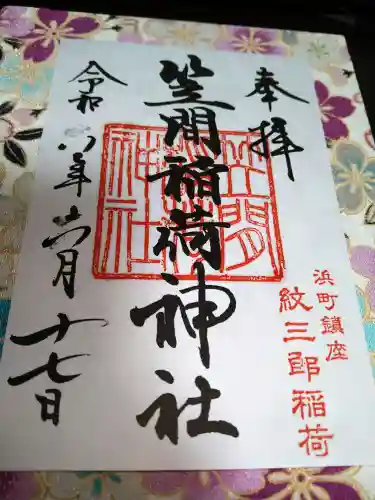 奉拝
浜町鎮座
紋三郎稲荷
笠間稲荷神社
笠間
神社
令和
年
六月
十七日